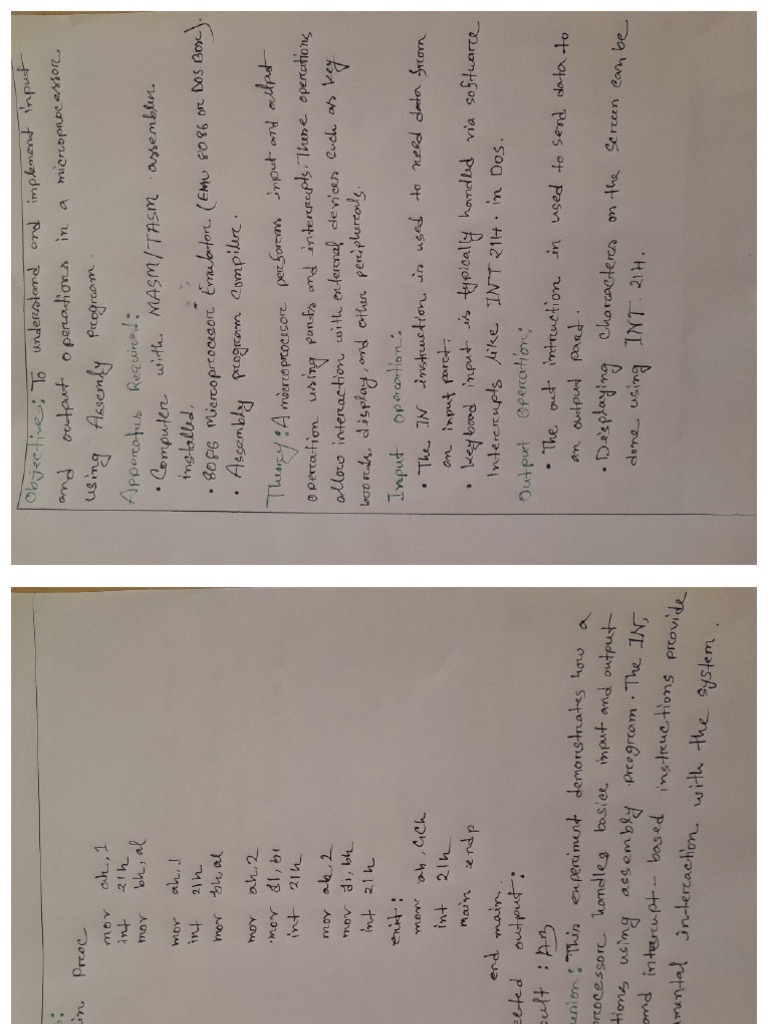 Objective: To understand and implement input
and output operations in a microprocessor
using Assemfy program.
Apparatus Required:
• Computer with MASM/TASM assembler
installed.
• 8086 Microprocessor Emulator (EMU 8086 or DOS Box).
• Assembly program compiler.
Theory: A microprocesor performs input and output
operation using ports and interrupts. These operations
allow interaction with external devices such as key
boards, display, and other peripherals.
Input Operation:
• The IN instruction is used to read data from
an input port.
• Keyboard input is typically handled via software
Interrupts like INT 21H. in Dos.
Output Operation:
• The out intruction in used to send data to
an output port.
• Displaying characters on the screen can be
done using INT 21H.
Proc
mov ah,1
int 21h
mov bh,al
mov ah,1
int 21h
mov bh,al
mov ah,2
mov dl,bl
int 21h
mov ah,2
mov dl,bh
int 21h
exit:
mov ah,4Ch
int 21h
main endp
end main.
ected output:
ult: AB
usion: This experiment demonstrates how a
rocessor handles basic input and output
tions using assembly program. The IN,
and interrupt-based instructions provide
mental interaction with the system.